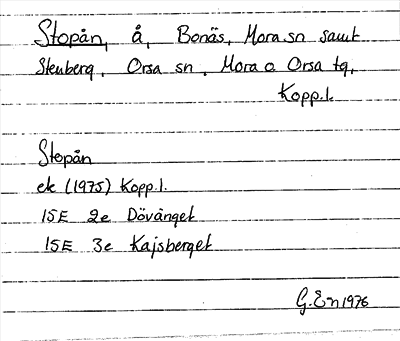 Stopån, å, Bonäs, Mora sn samt
Stenberg, Orsa sn, Mora o Orsa tg,
Kopp.l.
Stopån
ek (1975) Kopp.l.
15E 2e Dövånget
15E 3e Kajsberget
G.E-n 1976